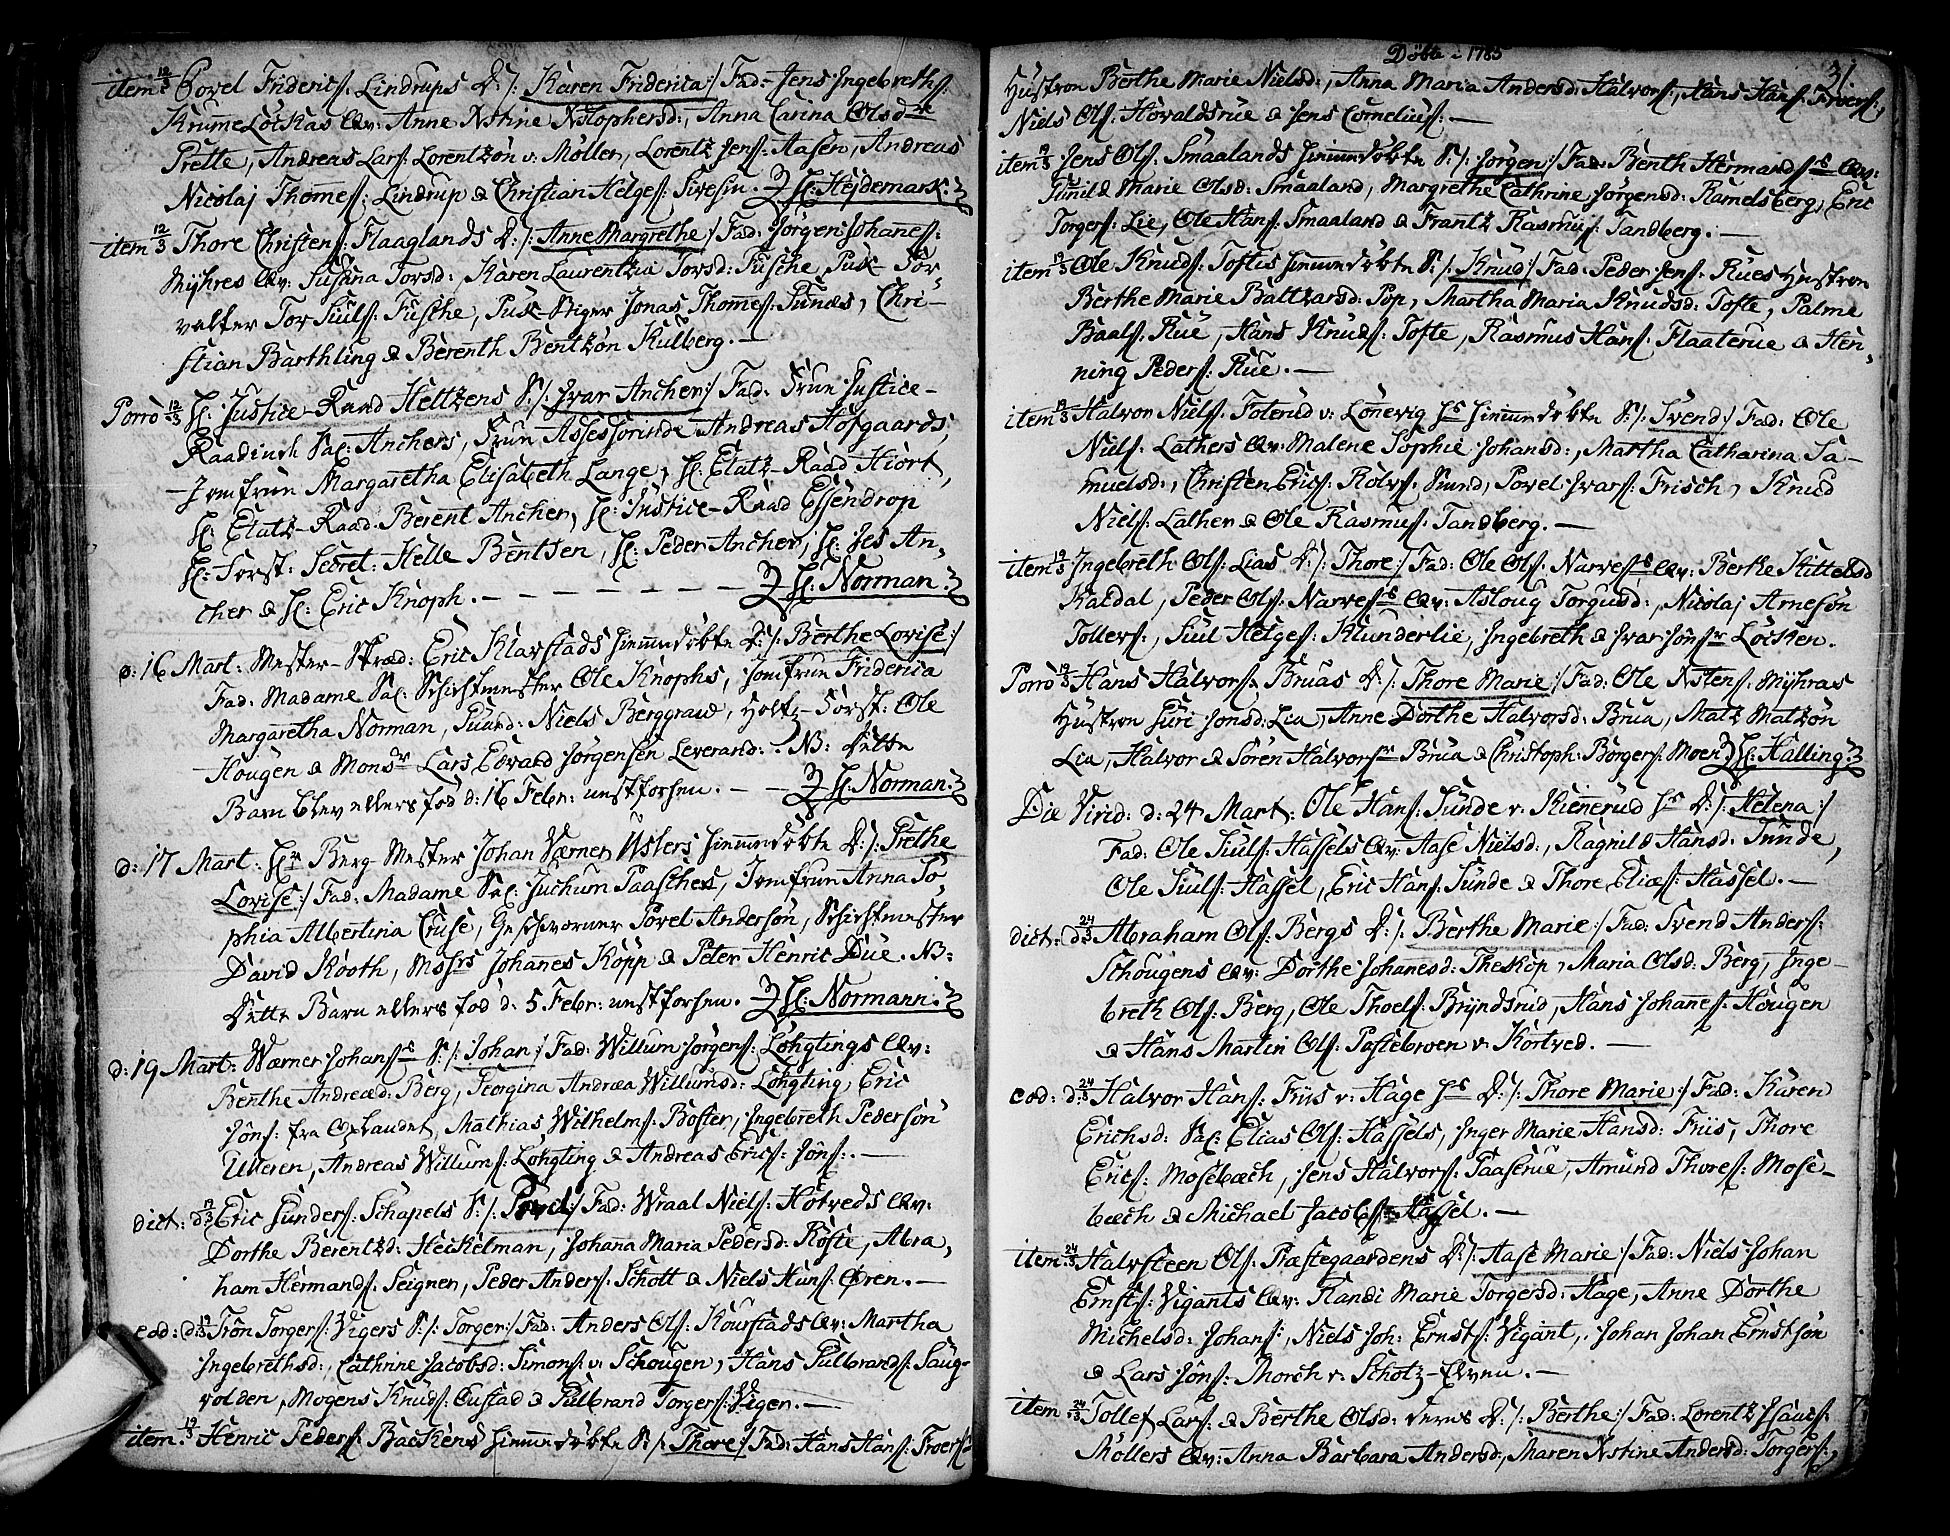 item 12/3 Povel Frideriks: Lindrups D: /: Karen Friderica :/ Fad: Jens Ingebreths:
Krumme Löckas Qv: Anne Xstine Xstophersd:, Anna Carina Olsd:
Prette, Andreas Lars: Lorentzön v. Möller, Lorentz Jens: Aasen, Andreas
Nicolaj Thomes: Lindrup & Christian Helges: Sivesin. H: Hejdemark:
item 12/3 Thore Christens: Flaaglands D: /: Anne Margrethe :/ Fad: Jörgen Johanes:
Myhres Qv: Susana Torsd:, Karen Laurentzia Torsd: Fusche, Puk-For-
valter Tor Juuls: Fusche, Puk-Stiger Jonas Thomes: Funæs, Chri-
stian Barthling & Berenth Bentzön Kulberg. —
Porrò 12/3 H: Justice-Raad Heltzens S: /: Ivar Ancher :/ Fad: Frue Justice-
Raadinde Sal: Anchers, Frue Assessorinde Andreas Hofgaards,
Jomfrue Margaretha Elisabeth Lange, H: Etatz-Raad Hiort,
H: Etatz-Raad Berent Ancher, H: Justice-Raad Essendrop
H: Forst: Secret: Helle Bentsen, H: Peder Ancher, H: Jes An-
cher & H: Eric Knoph. — H: Norman:
d: 16 Mart: Mester-Stræd: Eric Klavstads hiemmedöbte D: /: Berthe Lovise :/
Fad: Madame Sal: Schichtmester Ole Knophs, Jomfrue Friderica
Margaretha Norman, Guard: Niels Berggrav, Holtz-Forst: Ole
Hougen & Monsr Lars Edvard Jörgensen Leverand:. NB: Dette
Barn blev ellers föd d: 16 Febr: nestforhen. — H: Norman:
d: 17 Mart: Hr Berg Mester Johan Værner Üslers hiemmedöbte D: /: Grethe
Lovise :/ Fad: Madame Sal: Juchum Paasches, Jomfrue Anna So-
phia Albertina Cruse, Geschworner Povel Andersön, Schichtmester
David Kooth, Mosrs Johannes Köpp & Peter Henric Due. NB:
Dette Barn ellers föd d: 5 Febr: nestforhen. H: Normann:
d: 19 Mart: Værner Johans: S: /: Johan :/ Fad: Willum Jörgens: Löhgtings Qv:
Benthe Andreæd: Berg, Georgina Andræa Willumsd: Löhgting, Eric
Jöns: fra Oplandet, Mathias Wilhelms: Boster, Ingebreth Pedersön
Ulleren, Andreas Willums: Löhgting & Andreas Erics: Jöns:. —
dict: d 19/3 Eric Gunders: Schapels S: /: Povel :/ Fad: Wraal Niels: Hotveds Qv:
Dorthe Berentzd: Heckelman, Johana Maria Pedersd: Röste, Abra-
ham Hermands: Seigner, Peder Anders: Schott & Niels Huns: Ören. —
eod: d 19/3 Trön Torgers: Vigers S: /: Torger :/ Fad: Anders Ols: Kourstads Qv: Martha
Ingebrethsd:, Cathrine Jacobsd: Simons: v. Schougen, Hans Gulbrands: Saug-
volden, Mogens Knuds: Custad & Gulbrand Torgers: Vigen. —
item 19/3 Henric Peders: Backens hiemmedöbte S: /: Thore :/ Fad: Hans Hans: Froers:
Döbte 1785
31
Hustroe Berthe Marie Nielsd:, Anna Maria Andersd: Halvors:, Hans Hans: Froers:,
Niels Ols: Hovaldsrue & Jens Cornelius:. —
item 19/3 Jens Ols: Smaalands hiemmedöbte S: /: Jörgen :/ Fad: Benth Hermands: Qv:
Gunild Marie Olsd: Smaaland, Margrethe Cathrine Jörgensd: Ramelsberg, Eric
Torgers: Lie, Ole Hans: Smaaland & Frantz Rasmus: Tandberg. —
item 19/3 Ole Knuds: Toftes hiemmedöbte S: /: Knud :/ Fad: Peder Jens: Rues Hustroe
Berthe Marie Baltzarsd: Pop, Martha Maria Knudsd: Tofte, Palme
Baals: Rue, Hans Knuds: Tofte, Rasmus Hans: Flaaterue & Hen-
ning Peders: Rue. —
item 19/3 Halvor Niels: Foterud v. Lönevig Hs hiemmedöbte S: /: Svend :/ Fad: Ole
Niels: Lathers Qv: Malene Sophie Johansd:, Martha Catharina Sa-
muelsd:, Christen Erics: Rolvs: Smed, Povel Ivars: Frisch, Knud
Niels: Lather & Ole Rasmus: Tandberg. —
item 19/3 Ingebreth Ols: Lias D: /: Thore :/ Fad: Ole Ols: Narves: Qv: Berte Kittelsd
Kaldal, Peder Ols: Narves: Qv: Asloug Torgusd:, Nicolaj Arnesön
Tollers:, Juul Helges: Klunderlie, Ingebreth & Ivar Jöns: Löcken.
Porrò 19/3 Hans Halvors: Bruas D: /: Thore Marie :/ Fad: Ole Xstens: Myhras
Hustroe Guri Jonsd: Lia, Anne Dorthe Halvorsd: Brua, Matz Matzön
Lia, Halvor & Sören Halvors: Brua & Christoph: Borgers: Moen. H: Halling:
Die Virid: d: 24 Mart: Ole Hans: Sunde v. Kiennerud Hs D: /: Helena :/
Fad: Ole Juuls: Hassels Qv: Aase Nielsd:, Ragnild Hansd: Sunde,
Ole Juuls: Hassel, Eric Hans: Sunde & Thore Elias: Hassel. —
dict: d 24/3 Abraham Ols: Bergs D: /: Berthe Marie :/ Fad: Svend Anders:
Schougens Qv: Dorthe Johanesd: Theskop, Maria Olsd: Berg, Inge-
breth Ols: Berg, Ole Thoels: Bryndsrud, Hans Johannes: Hougen
& Hans Martin Ols: Tostebroen v. Kortved. —
eod: d: 24/3 Halvor Hans: Friis v. Hage Hs D: /: Thore Marie :/ Fad: Karen
Erichsd: Sal: Elias Ols: Hassels, Inger Marie Hansd: Friis, Thore
Erics: Mosebæch, Jens Halvors: Gaaserue, Amund Thores: Mose-
bæch & Michael Jacobs: Hassel. —
item 24/3 Halvsteen Ols: Præstegaardens D: /: Aase Marie :/ Fad: Niels Johan
Ernsts: Vigants Qv: Randi Marie Torgersd: Hage, Anne Dorthe
Michelsd: Johans:, Niels Joh: Ernsts: Vigant, Johan Johan Ernstsön
& Lars Jöns: Morch v. Schotz-Elven. —
item 24/3 Tollef Lars: & Berthe Olsd: deres D: /: Berthe :/ Fad: Lorentz Isaacs:
Möllers Qv: Anna Barbara Andersd:, Maren Xstine Andersd: Torgers:,